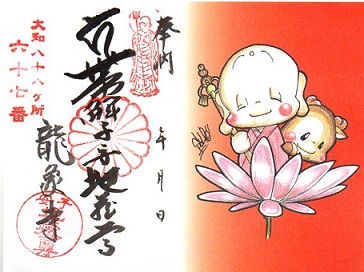 奉納
年月日
帯解子安地蔵尊
大和八十八ヶ所
六十七番
龍象寺